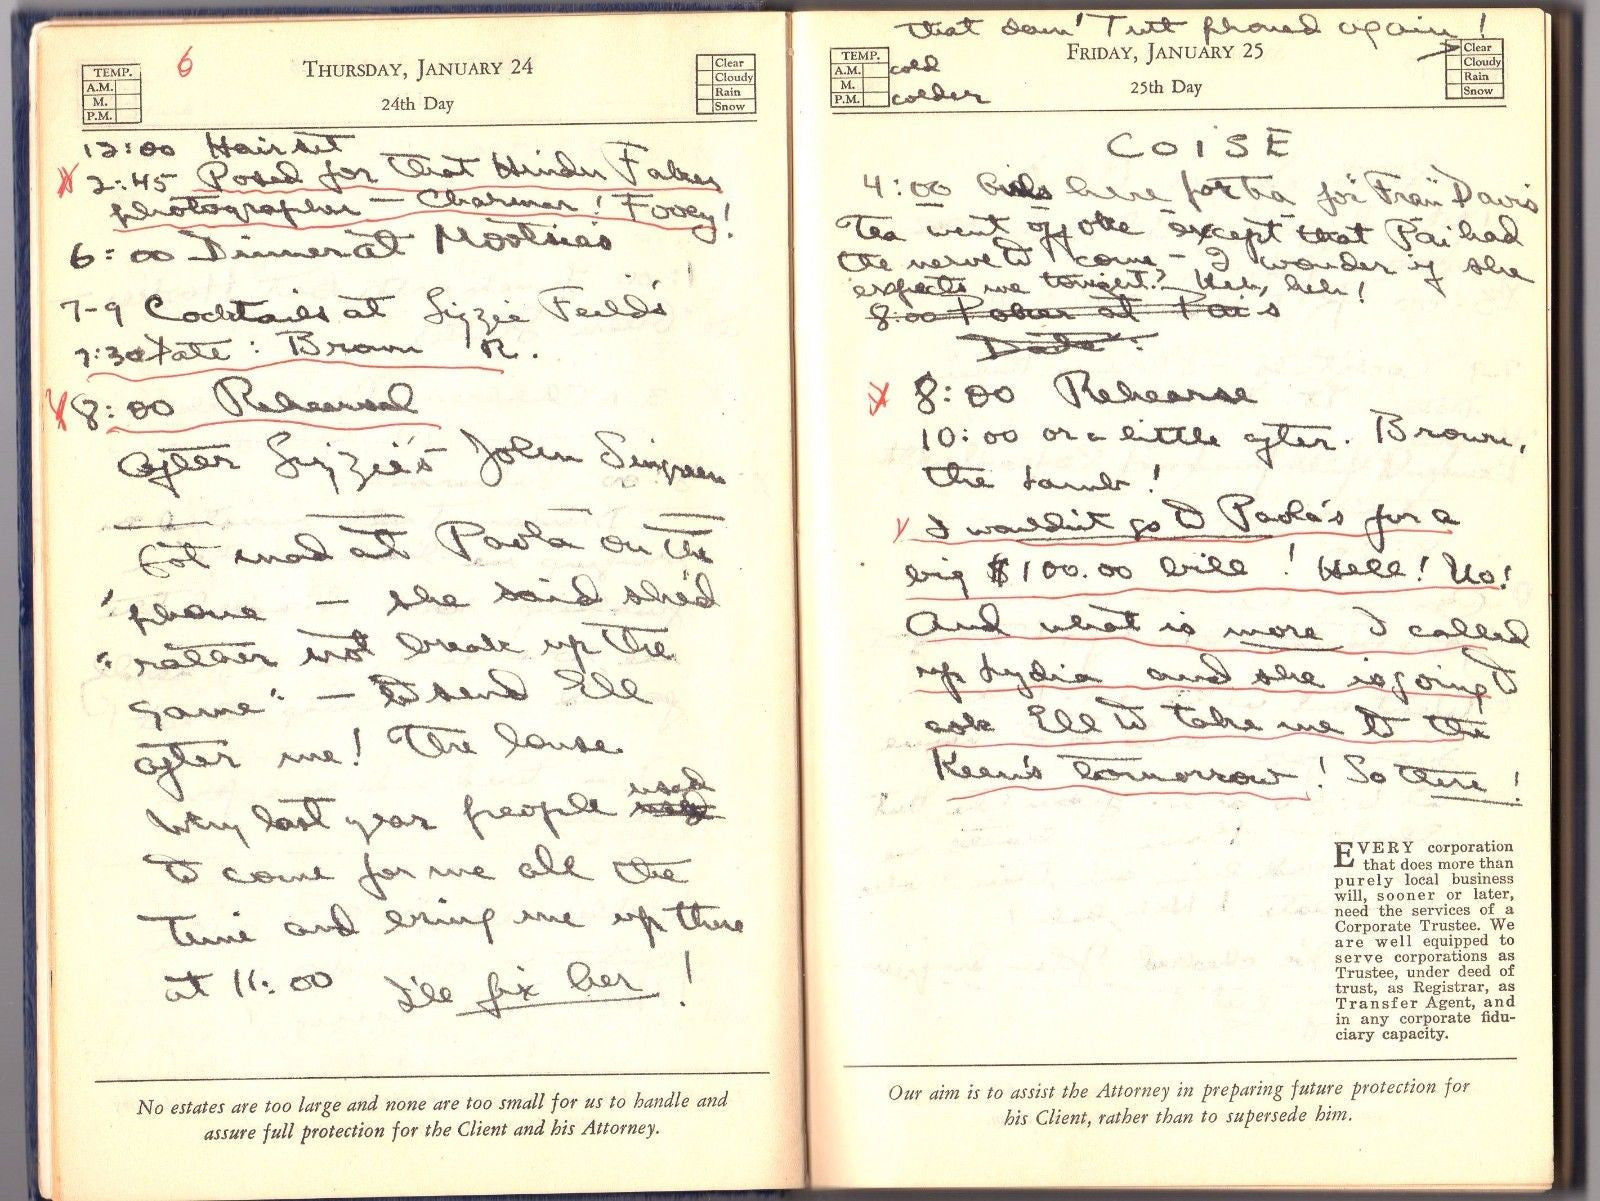 6
THURSDAY, JANUARY 24
24th Day
TEMP.
A.M.
M.
P.M.
Clear
Cloudy
Rain
Snow
12:00 Hair set
2:45 Posed for that Hindu Faker
photographer — Charmer! Fooey!
6:00 Dinner at Mootsie's
7-9 Cocktails at Lizzie Feild's
7:30 Date: Brown R.
8:00 Rehearsal
after Lizzie's John Simpson
Got mad at Paola on the
'phone — she said she'd
"rather not break up the
game" — to send Ell
after me! The louse.
Why last year people used
to come for me all the
time and bring me up there
at 11:00 I'll fix her!
No estates are too large and none are too small for us to handle and
assure full protection for the Client and his Attorney.
that dam' Tutt phoned again!
FRIDAY, JANUARY 25
25th Day
TEMP.
A.M. cold
M.
P.M. colder
Clear
Cloudy
Rain
Snow
COISE
4:00 Girls here for tea for "Fran" Davis
Tea went off oke except that Pai had
the nerve to come — I wonder if she
expects me tonight? Heh, heh!
8:00 Poker at Pai's
Date:
8:00 Rehearse
10:00 or a little after. Brown,
the lamb!
I wouldn't go to Paola's for a
big $100.00 bill! Hell! No!
And what is more I called
up Lydia and she is going to
ask Ell to take me to the
Keen's tomorrow! So there!
EVERY corporation
that does more than
purely local business
will, sooner or later,
need the services of a
Corporate Trustee. We
are well equipped to
serve corporations as
Trustee, under deed of
trust, as Registrar, as
Transfer Agent, and
in any corporate fidu-
ciary capacity.
Our aim is to assist the Attorney in preparing future protection for
his Client, rather than to supersede him.